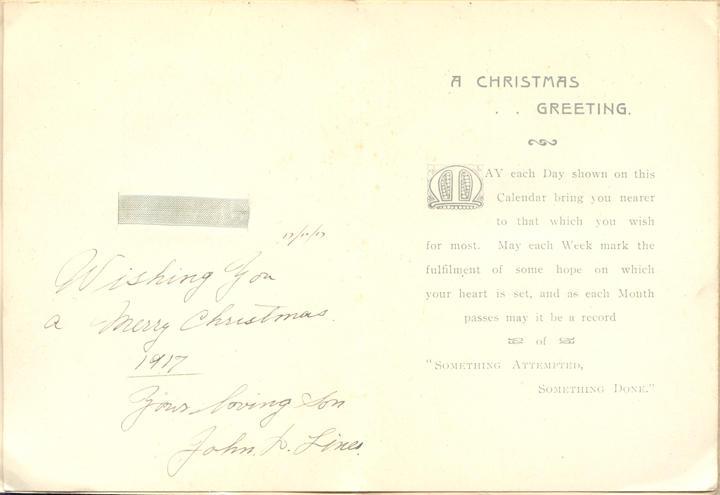 17/11/17
Wishing You
a Merry Christmas.
1917
Your loving Son
John. D. Lines.
A CHRISTMAS
. . GREETING.
MAY each Day shown on this
Calendar bring you nearer
to that which you wish
for most. May each Week mark the
fulfilment of some hope on which
your heart is set, and as each Month
passes may it be a record
of
"SOMETHING ATTEMPTED,
SOMETHING DONE."